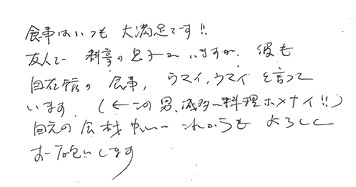 食事はいつも 大満足です!!
友人で 料亭の息子がいますが、彼も
自在館の 食事、ウマイ、ウマイ と言って
います。(←この男、滅多に料理ホメナイ!!)
地元の食材 これからも よろしく
お願いします